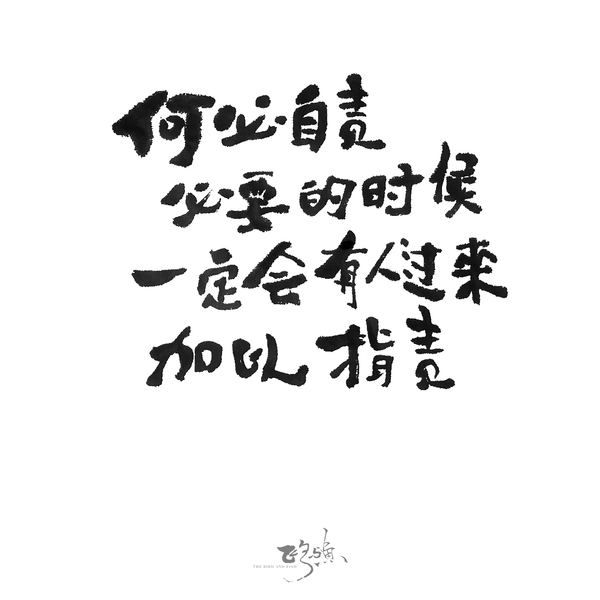 何必自责
必要的时候
一定会有人过来
加以指责
THE BIRD AND FISH